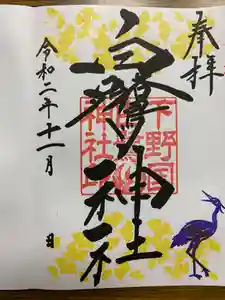 奉拝
白鷺神社
下野国
神社印
令和二年十一月 日